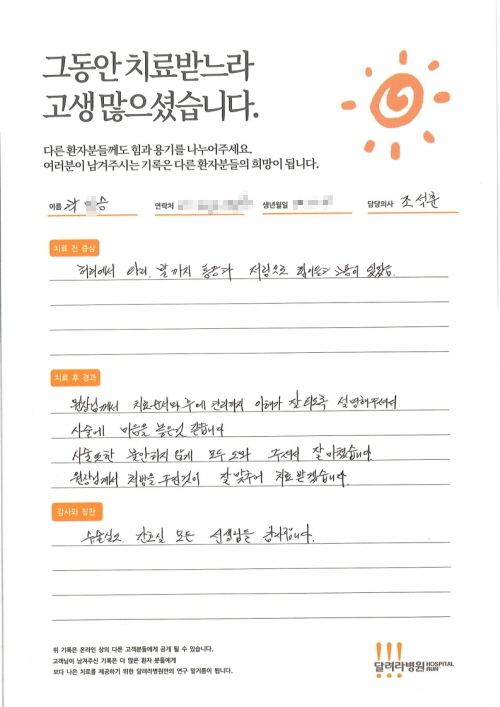 그동안 치료받느라
고생 많으셨습니다.
다른 환자분들께도 힘과 용기를 나누어주세요.
여러분이 남겨주시는 기록은 다른 환자분들의 희망이 됩니다.
이름 곽 승 연락처 생년월일 담당의사 조석훈
치료 전 증상
허리에서 아래, 발까지 통증과 저림으로 힘이들고 고통이 있었음.
치료 후 경과
원장님께서 치료순서와 후에 관리까지 이해가 잘 되도록 설명해주셔서
시술에 마음을 놓은것 같습니다
시술또한 불안하지 않게 모두 도와 주셔서 잘 마쳤습니다
원장님께서 처방을 주신것이 잘 맞추어 치료받겠습니다.
감사와 칭찬
수술실과, 간호실 모든 선생님들 감사합니다.
위 기록은 온라인 상의 다른 고객분들에게 공개 될 수 있습니다.
고객님이 남겨주신 기록은 더 많은 환자 분들에게
보다 나은 치료를 제공하기 위한 달려라병원만의 연구 밑거름이 됩니다.
달려라병원 HOSPITAL RUN